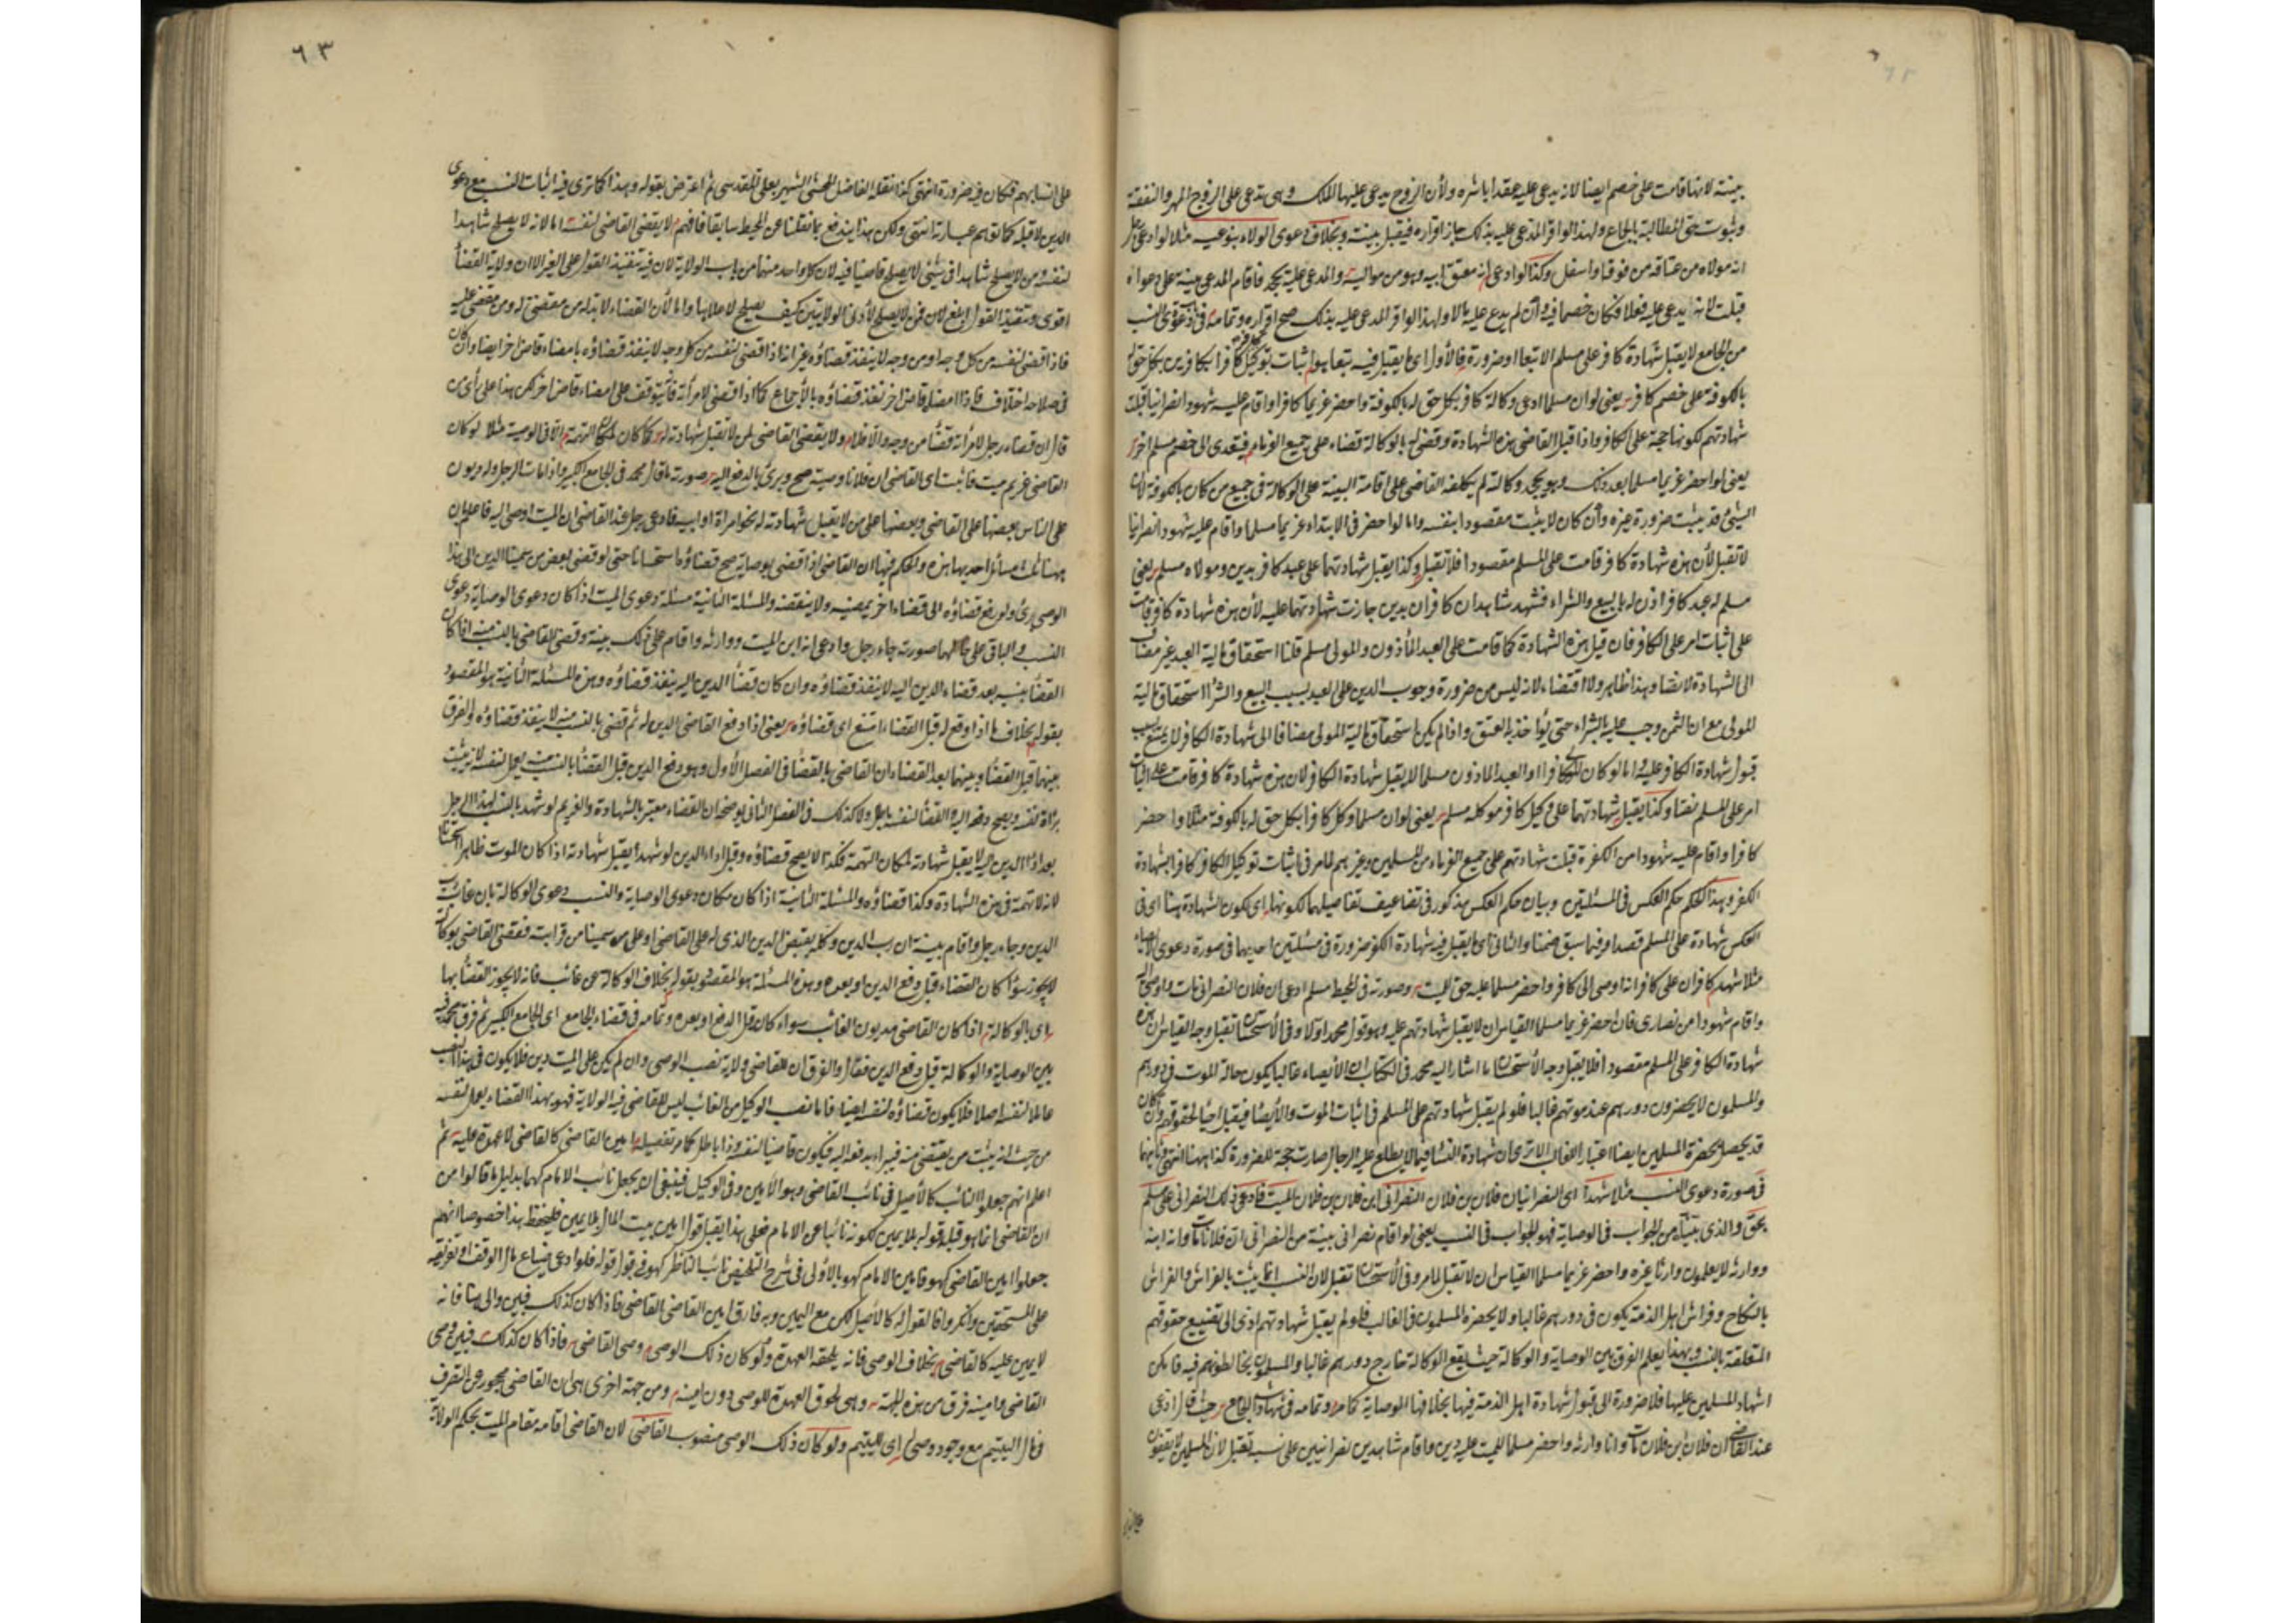 ٦٢
بينة لانها قامت على خصم ايضا لانه يدعى عليه عقدا باشره ولأن الزوج يدعى عليها الملك وهى تدعى على الزوج المهر والنفقة
وثبوت حق المطالبة بالجماع ولهذا لو اقر المدعى عليه بذلك جاز اقراره فيقبل بينته وبخلاف دعوى الولاء بنوعيه مثلا لو ادعى
انه مولاه من عتاقه من فوق او اسفل وكذا لو ادعى انه معتق ابيه وهو من مواليه والمدعى عليه يجحد فاقام المدعى بينة على دعواه
قبلت لانه يدعى عليه فعلا فكان خصما فيه وأن لم يدع عليه مالا ولهذا لو اقر المدعى عليه بذلك صح اقراره وتمامه فى دعوى النسب
من الجامع لا يقبل شهادة كافر على مسلم الا تبعا او ضرورة فالأول اى ما يقبل فيه تبعا هو اثبات توكيل كافر كافرا بكافرين بكل حق له
بالكوفة على خصم كافر يعنى لو ان مسلما ادعى وكالة كافر بكل حق له بالكوفة واحضر غريما كافرا واقام عليه شهودا نصرانيا قبلت
شهادتهم لكونها حجة على الكافر واذا قبل القاضى هذه الشهادة وقضى له بالوكالة قضاء على جميع الغرماء فيتعدى الى خصم مسلم اخر
يعنى لو احضر غريما مسلما بعد ذلك وهو يجحد وكالته لم يكلفه القاضى على اقامة البينة على الوكالة فى جميع من كان بالكوفة لان
الشئ قد يثبت ضرورة غيره وأن كان لا يثبت مقصودا بنفسه واما لو احضر فى الابتداء غريما مسلما واقام عليه شهودا نصرانيا
لا تقبل لأن هذه شهادة كافر قامت على المسلم مقصودا فلا تقبل وكذا يقبل شهادتهما على عبد كافر بدين ومولاه مسلم يعنى
مسلم له عبد كافر اذن له بالبيع والشراء فشهد شاهدان كافران بدين جازت شهادتهما عليه لأن هذه شهادة كافر قامت
على اثبات امر على الكافر فان قيل هذه الشهادة كما قامت على العبد المأذون والمولى مسلم قلنا استحقاق مالية العبد غير مضاف
الى الشهادة لا نصا وهذا ظاهر ولا اقتضاء لانه ليس من ضرورة وجوب الدين على العبد بسبب البيع والشراء استحقاق مالية
المولى مع ان الثمن وجب عليه بالشراء حتى يؤاخذ به بالعتق واذا لم يكن استحقاق مالية المولى مضافا الى شهادة الكافر لا يمتنع
قبول شهادة الكافر عليه واما لو كان المولى كافرا والعبد الماذون مسلما لا يقبل شهادة الكافر لان هذه شهادة كافر قامت على اثبات
امر على المسلم نصا وكذا يقبل شهادتهما على وكيل كافر موكله مسلم يعنى لو ان مسلما وكل كافرا بكل حق له بالكوفة مثلا واحضر
كافرا واقام عليه شهودا من الكفرة قبلت شهادتهم على جميع الغرماء من المسلمين وغيرهم لما مر فى اثبات توكيل الكافر كافرا بشهادة
الكفر وهذا الحكم حكم العكس فى المسئلتين وبيان حكم العكس مذكور فى تضاعيف تفاصيلها لكونها اى لكون الشهادة هنا اى فى
العكس شهادة على المسلم قصدا وفيما سبق ضمنا والثانى اى ما يقبل فيه شهادة الكفر ضرورة فى مسئلتين احديهما فى صورة دعوى الايصاء
مثلا شهد كافران على كافر انه اوصى الى كافر واحضر مسلما عليه حق للميت وصورته فى المحيط مسلم ادعى ان فلان النصرانى مات واوصى اليه
واقام شهودا من نصارى فان احضر غريما مسلما القياس ان لا يقبل شهادتهم عليه وهو قول محمد اولا وفى الأستحسان تقبل وجه القياس ان هذه
شهادة الكافر على المسلم مقصودا فلا يقبل وجه الأستحسان ما اشار اليه محمد فى الكتاب ان الأيصاء غالبا يكون حالة الموت فى دورهم
والمسلمون لا يحضرون دورهم عند موتهم غالبا فلو لم يقبل شهادتهم على المسلم فى اثبات الموت والأيصاء فيقبل احياء لحقوقهم وأن كان
قد يحصل بحضرة المسلمين ايضا اعتبارا للغالب الا ترى ان شهادة النساء فيما لا يطلع عليه الرجال صارت حجة للضرورة كذا هاهنا انتهى وثانيهما
فى صورة دعوى النسب مثلا شهدا اى النصرانيان فلان بن فلان النصرانى ابن فلان بن فلان الميت فادعى ذلك النصرانى على مسلم
بحق والذى بيناه من الجواب فى الوصاية فهو الجواب فى النسب يعنى لو اقام نصرانى بينة من النصرانى ان فلانا مات وانه ابنه
ووارثه لا يعلمون وارثا غيره واحضر غريما مسلما القياس ان لا تقبل لما مر وفى الأستحسان تقبل لان النسب انما يثبت بالفراش والفراش
بالنكاح وفراش اهل الذمة يكون فى دورهم غالبا ولا يحضره المسلمون فى الغالب فلو لم يقبل شهادتهم ادى الى تضييع حقوقهم
المتعلقة بالنسب وبهذا يعلم الفرق بين الوصاية والوكالة حيث يقع الوكالة خارج دورهم غالبا والمسلمون يخالطونهم فيه فامكن
اشهاد المسلمين عليها فلا ضرورة الى قبول شهادة اهل الذمة فيها بخلاف الوصاية كما مر وتمامه فى شهادات الجامع حيث قال ادعى
عند القاضى ان فلان ابن فلان مات وانا وارثه واحضر مسلما للميت عليه دين واقام شاهدين نصرانيين على نسبه تقبل لان المسلمين لا يقفون
٦٣
على انسابهم فكان فيه ضرورة انتهى كذا نقله الفاضل المحشى الشهير بعلى المقدسى ثم اعترض بقوله وهذا كما ترى فيه اثبات النسب مع دعوى
الدين لا قبله كما توهم عبارته انتهى ولكن هذا يندفع بما نقلنا عن المحيط سابقا فافهم لا يقضى القاضى لنفسه اما لانه لا يصلح شاهدا
لنفسه ومن لا يصلح شاهدا فى شئ لا يصلح قاضيا فيه لان كل واحد منهما من باب الولاية لان فيه تنفيذ القول على الغير الا ان ولاية القضاء
اقوى وتنفيذ القول ابلغ لان فمن لا يصلح لأدنى الولايتين كيف يصلح لاعلاها واما لأن القضاء لا بد له من مقضى له ومن مقضى عليه
فاذا قضى لنفسه من كل وجه او من وجه لا ينفذ قضاؤه غير انه اذا قضى لنفسه من كل وجه لا ينفذ قضاؤه بامضاء قاض اخر ايضا وأن كان
فى صلاحه اختلاف فاذا امضاه قاض اخر نفذ قضاؤه بالأجماع كما اذا قضى لامرأته فانه يتوقف على امضاء قاض اخر لكن هذا على رأى من
قال ان قضاء رجل لامرأته قضاء من وجه والاظهر ولا يقضى القاضى لمن لا تقبل شهادته له كما كان لمكان التهمة الا فى الوصية مثلا لو كان
القاضى غريم ميت فاثبت اى القاضى ان فلانا وصيه صح وبرئ بالدفع اليه صورته ما قال محمد فى الجامع الكبير واذا مات الرجل وله ديون
على الناس بعضها على القاضى وبعضها على من لا يقبل شهادته له نحو امرأة او ابيه فادعى رجل عند القاضى ان الميت اوصى اليه فاعلم ان
هنا ثلث مسائل احديها هذه والحكم فيها ان القاضى اذا قضى بوصايته صح قضاؤه استحسانا حتى لو قضى بعض من سمينا الدين الى هذا
الوصى برئ ولو رفع قضاؤه الى قضاء اخر يمضيه ولا ينقضه والمسئلة الثانية مسئلة دعوى الميت اذا كان دعوى الوصاية دعوى
النسب والباقى على حالها صورته جاء رجل وادعى انه ابن الميت ووارثه واقام على ذلك بينة وقضى القاضى بالنسب منه اذا كان
القضاء بنسبه بعد قضاء الدين اليه لا ينفذ قضاؤه وان كان قضاء الدين اليه ينفذ قضاؤه وهذه المسئلة الثانية هو المقصود
بقوله بخلاف ما اذا وقع له قبل القضاء امتنع اى قضاؤه يعنى اذا دفع القاضى الدين له ثم قضى بالنسب منه لا ينفذ قضاؤه والفرق
بينهما قبل القضاء وبينهما بعد القضاء ان القاضى بالقضاء فى الفصل الأول وهو دفع الدين قبل القضاء بالنسب منه يعمل لنفسه لانه يثبت
براءة نفسه ويصح دفعه اليه والقضاء لنفسه باطل ولا كذلك فى الفصل الثانى يوضحه ان القضاء معتبر بالشهادة والغريم لو شهد بالنسب لهذا الرجل
بعد اداء الدين اليه لا يقبل شهادته لمكان التهمة فكذا لا يصح قضاؤه وقبل اداء الدين لو شهد يقبل شهادته اذا كان الموت ظاهرا استحسانا
لانه لا تهمة فى هذه الشهادة وكذا قضاؤه والمسئلة الثانية اذا كان مكان دعوى الوصاية والنسب دعوى الوكالة بان غاب رب
الدين وجاء رجل واقام بينة ان رب الدين وكله بقبض الدين الذى له على القاضى او على من سمينا من قرابته فقضى القاضى بوكالته
لا يجوز سواء كان القضاء قبل دفع الدين او بعده وهذه المسئلة هو المقصود بقوله بخلاف الوكالة عن غائب فانه لا يجوز القضاء بها
اى بالوكالة اذا كان القاضى مديون الغائب سواء كان قبل الدفع او بعده وتمامه فى قضاء الجامع اى الجامع الكبير ثم فرق محمد فيه
بين الوصاية والوكالة قبل دفع الدين فقال والفرق ان للقاضى ولاية نصب الوصى وان لم يكن على الميت دين فلا يكون فى هذا النصب
عاملا لنفسه اصلا فلا يكون قضاؤه لنفسه ايضا فاما نصب الوكيل من الغائب ليس للقاضى فيه الولاية فهو بهذا القضاء يعمل لنفسه
من حيث انه يثبت من يقتضى منه فيبراء بدفعه اليه فيكون قاضيا لنفسه وذا باطل كما مر تفصيله امين القاضى كالقاضى لا عهدة عليه ثم
اعلم انهم جعلوا النائب كالأصيل فى نائب القاضى وهو الأمين وفى الوكيل فينبغى ان يجعل نائب الامام كهما بدليل ما قالوا من
ان القاضى انما هو قبلوا قوله بلا يمين لكونه نائبا عن الامام فعلى هذا يقبل قول امين بيت المال بلا يمين فليحفظ هذا خصوصا انهم
جعلوا امين القاضى كهو فامين الامام كهو بالأولى فى شرح التلخيص نائب الناظر كهو فى قبول قوله فلو ادعى ضياع مال الوقف او تفريقه
على المستحقين وانكروا فالقول له كالأصيل لكن مع اليمين وبه فارق امين القاضى القاضى فاذا كان كذلك فبين والى هنا فانه
لا يمين عليه كالقاضى بخلاف الوصى فانه يلحقه العهدة ولو كان ذلك الوصى وصى القاضى فاذا كان كذلك فبين وصى
القاضى وامينه فرق من هذه الجهة وهى لحوق العهدة للوصى دون امينه ومن جهة اخرى هى ان القاضى محجور عن التصرف
فى مال اليتيم مع وجود وصى اى لليتيم ولو كان ذلك الوصى منصوب القاضى لان القاضى اقامه مقام الميت بحكم الولاية